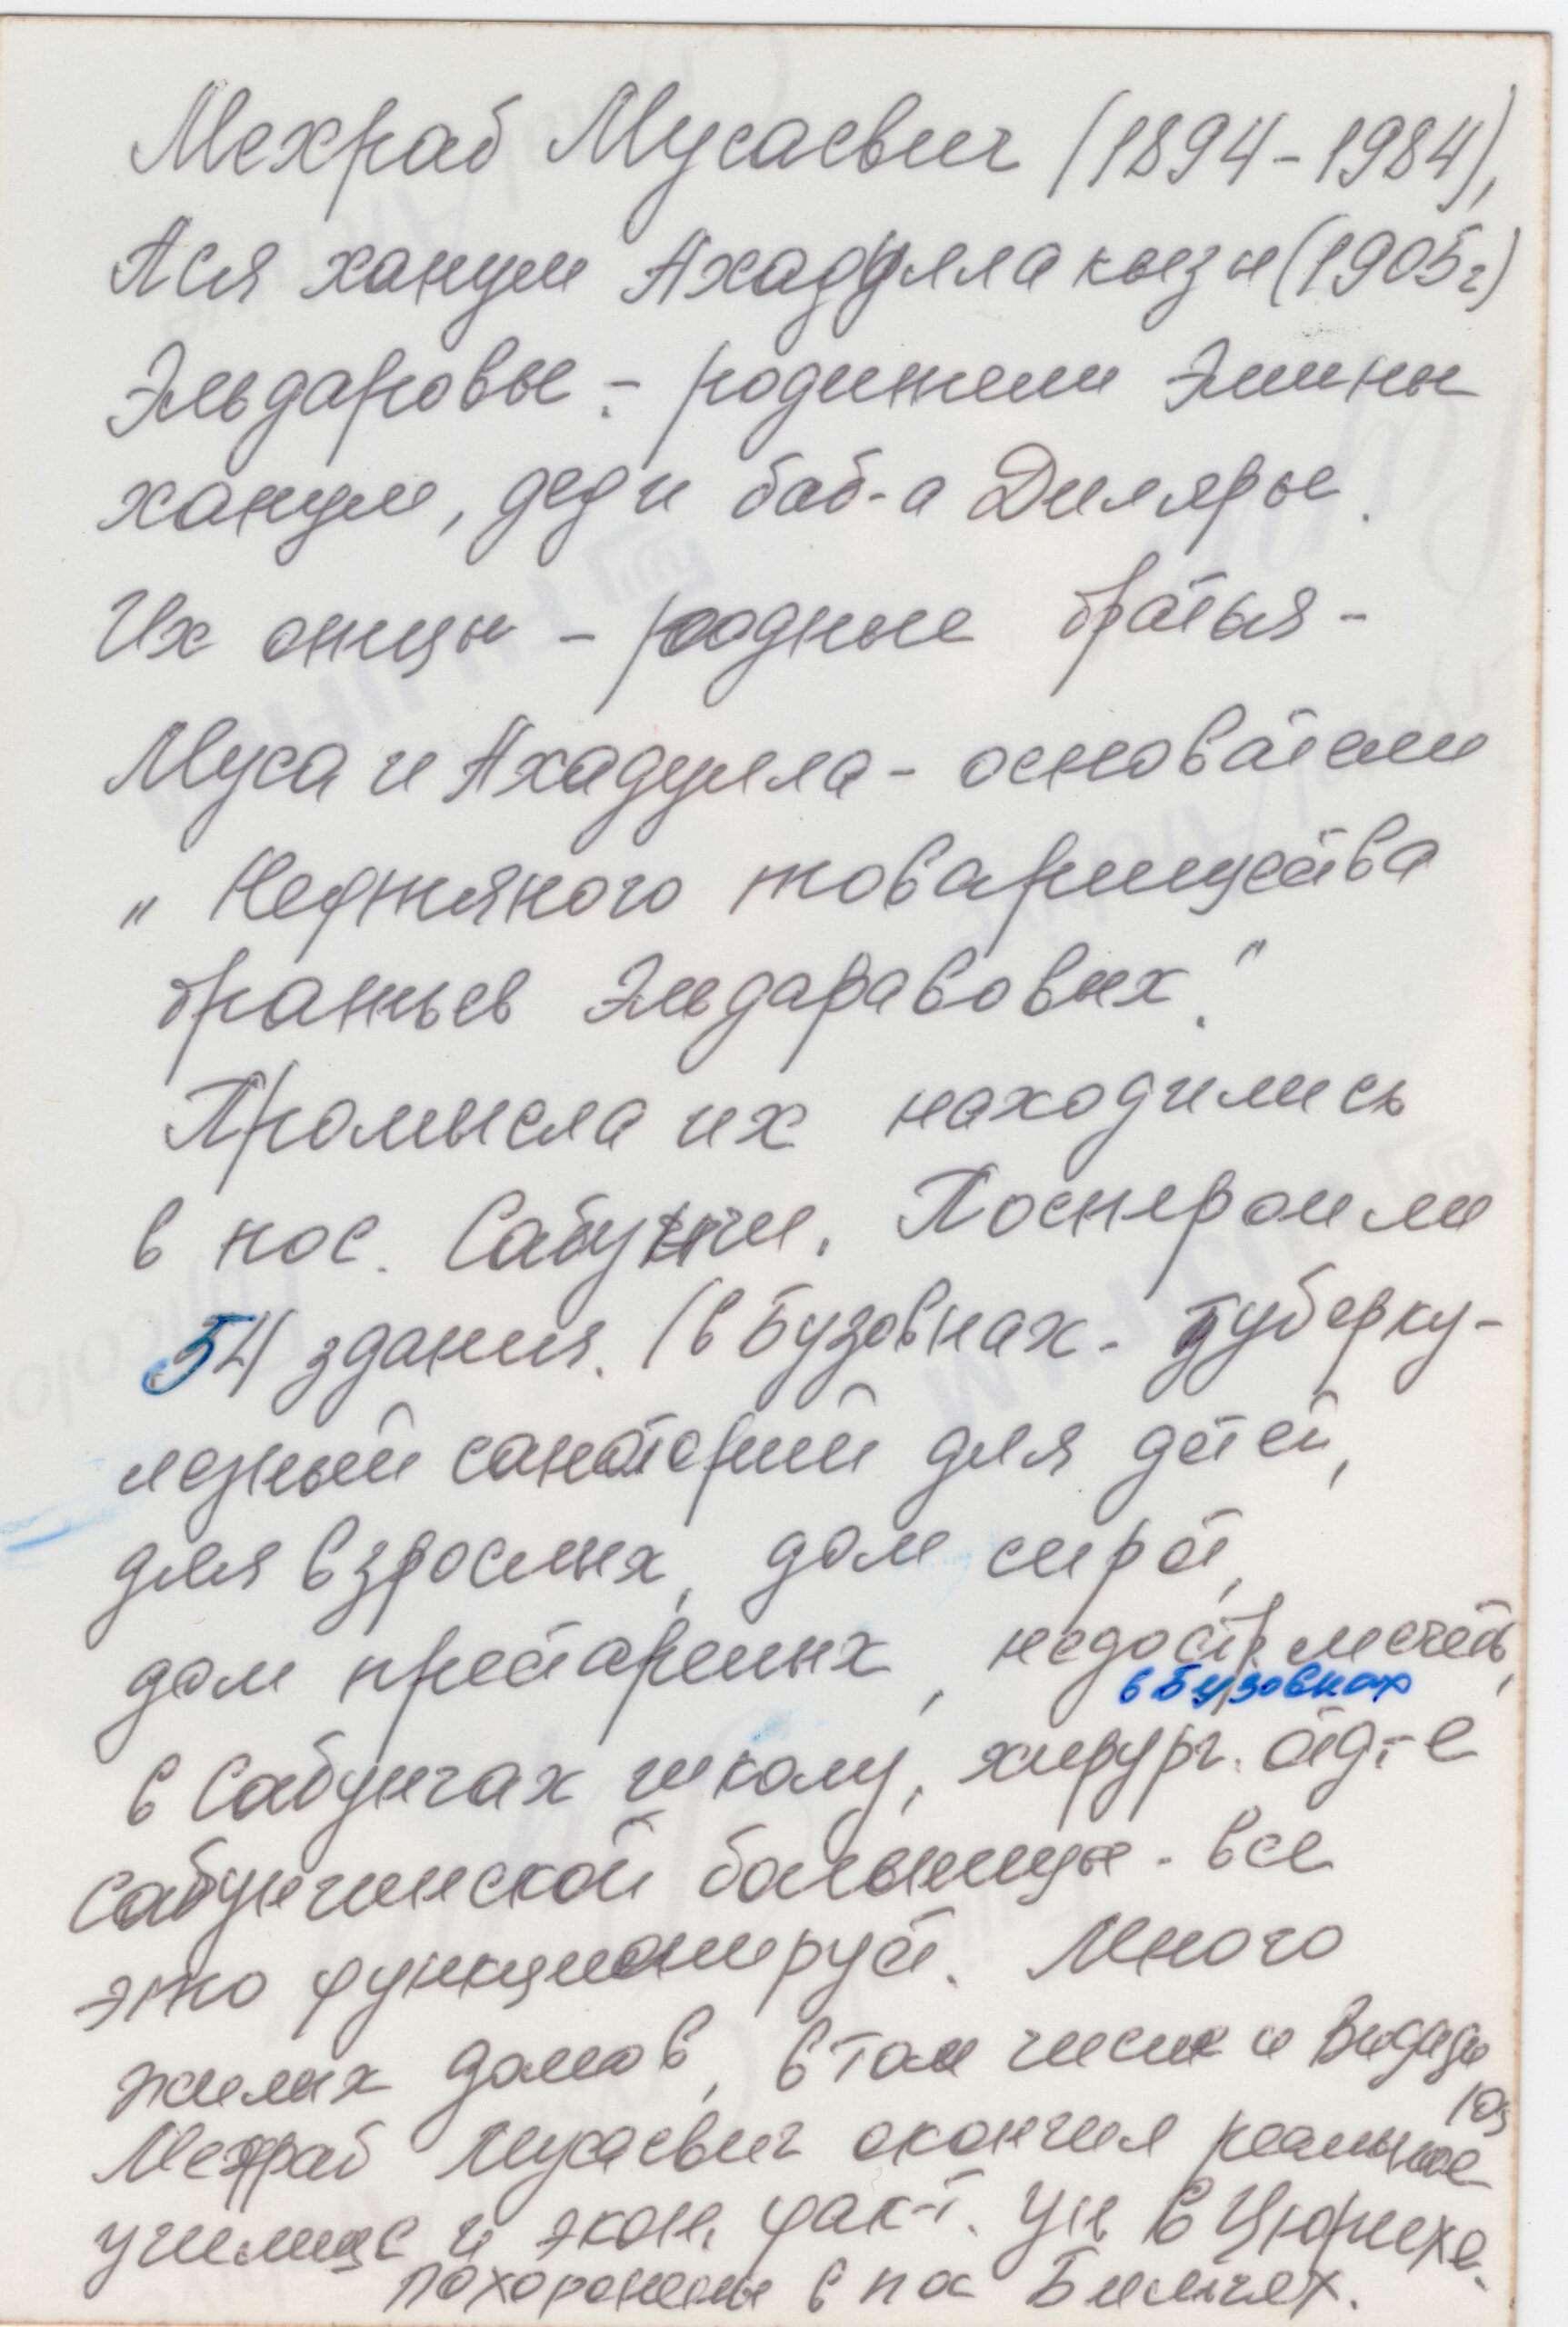 Мехраб Мусаевич (1894-1984),
Ася ханум Ахадулла кызы (1905г)
Эльдаровы - родители Элины
ханум, дед и баб-а Диляры.
Их отцы - родные братья -
Муса и Ахадулла - основатели
„Нефтяного товарищества
братьев Эльдаравовых."
Промысла их находились
в пос. Сабунчи. Построили
54 здания. (в Бузовнах - туберку-
лезный санаторий для детей,
для взрослых, дом сирот,
дом престарелых, недостр. мечеть,
в Бузовнах
в Сабунчах школу, хирург. отд-е
сабунчинской больницы - все
это функционирует. Много
жилых домов, в том числе и Видади
Мехраб Мусаевич окончил реальное
училище и экон. фак-т. ун в Цюрихе.
похоронены в пос Бильгях.